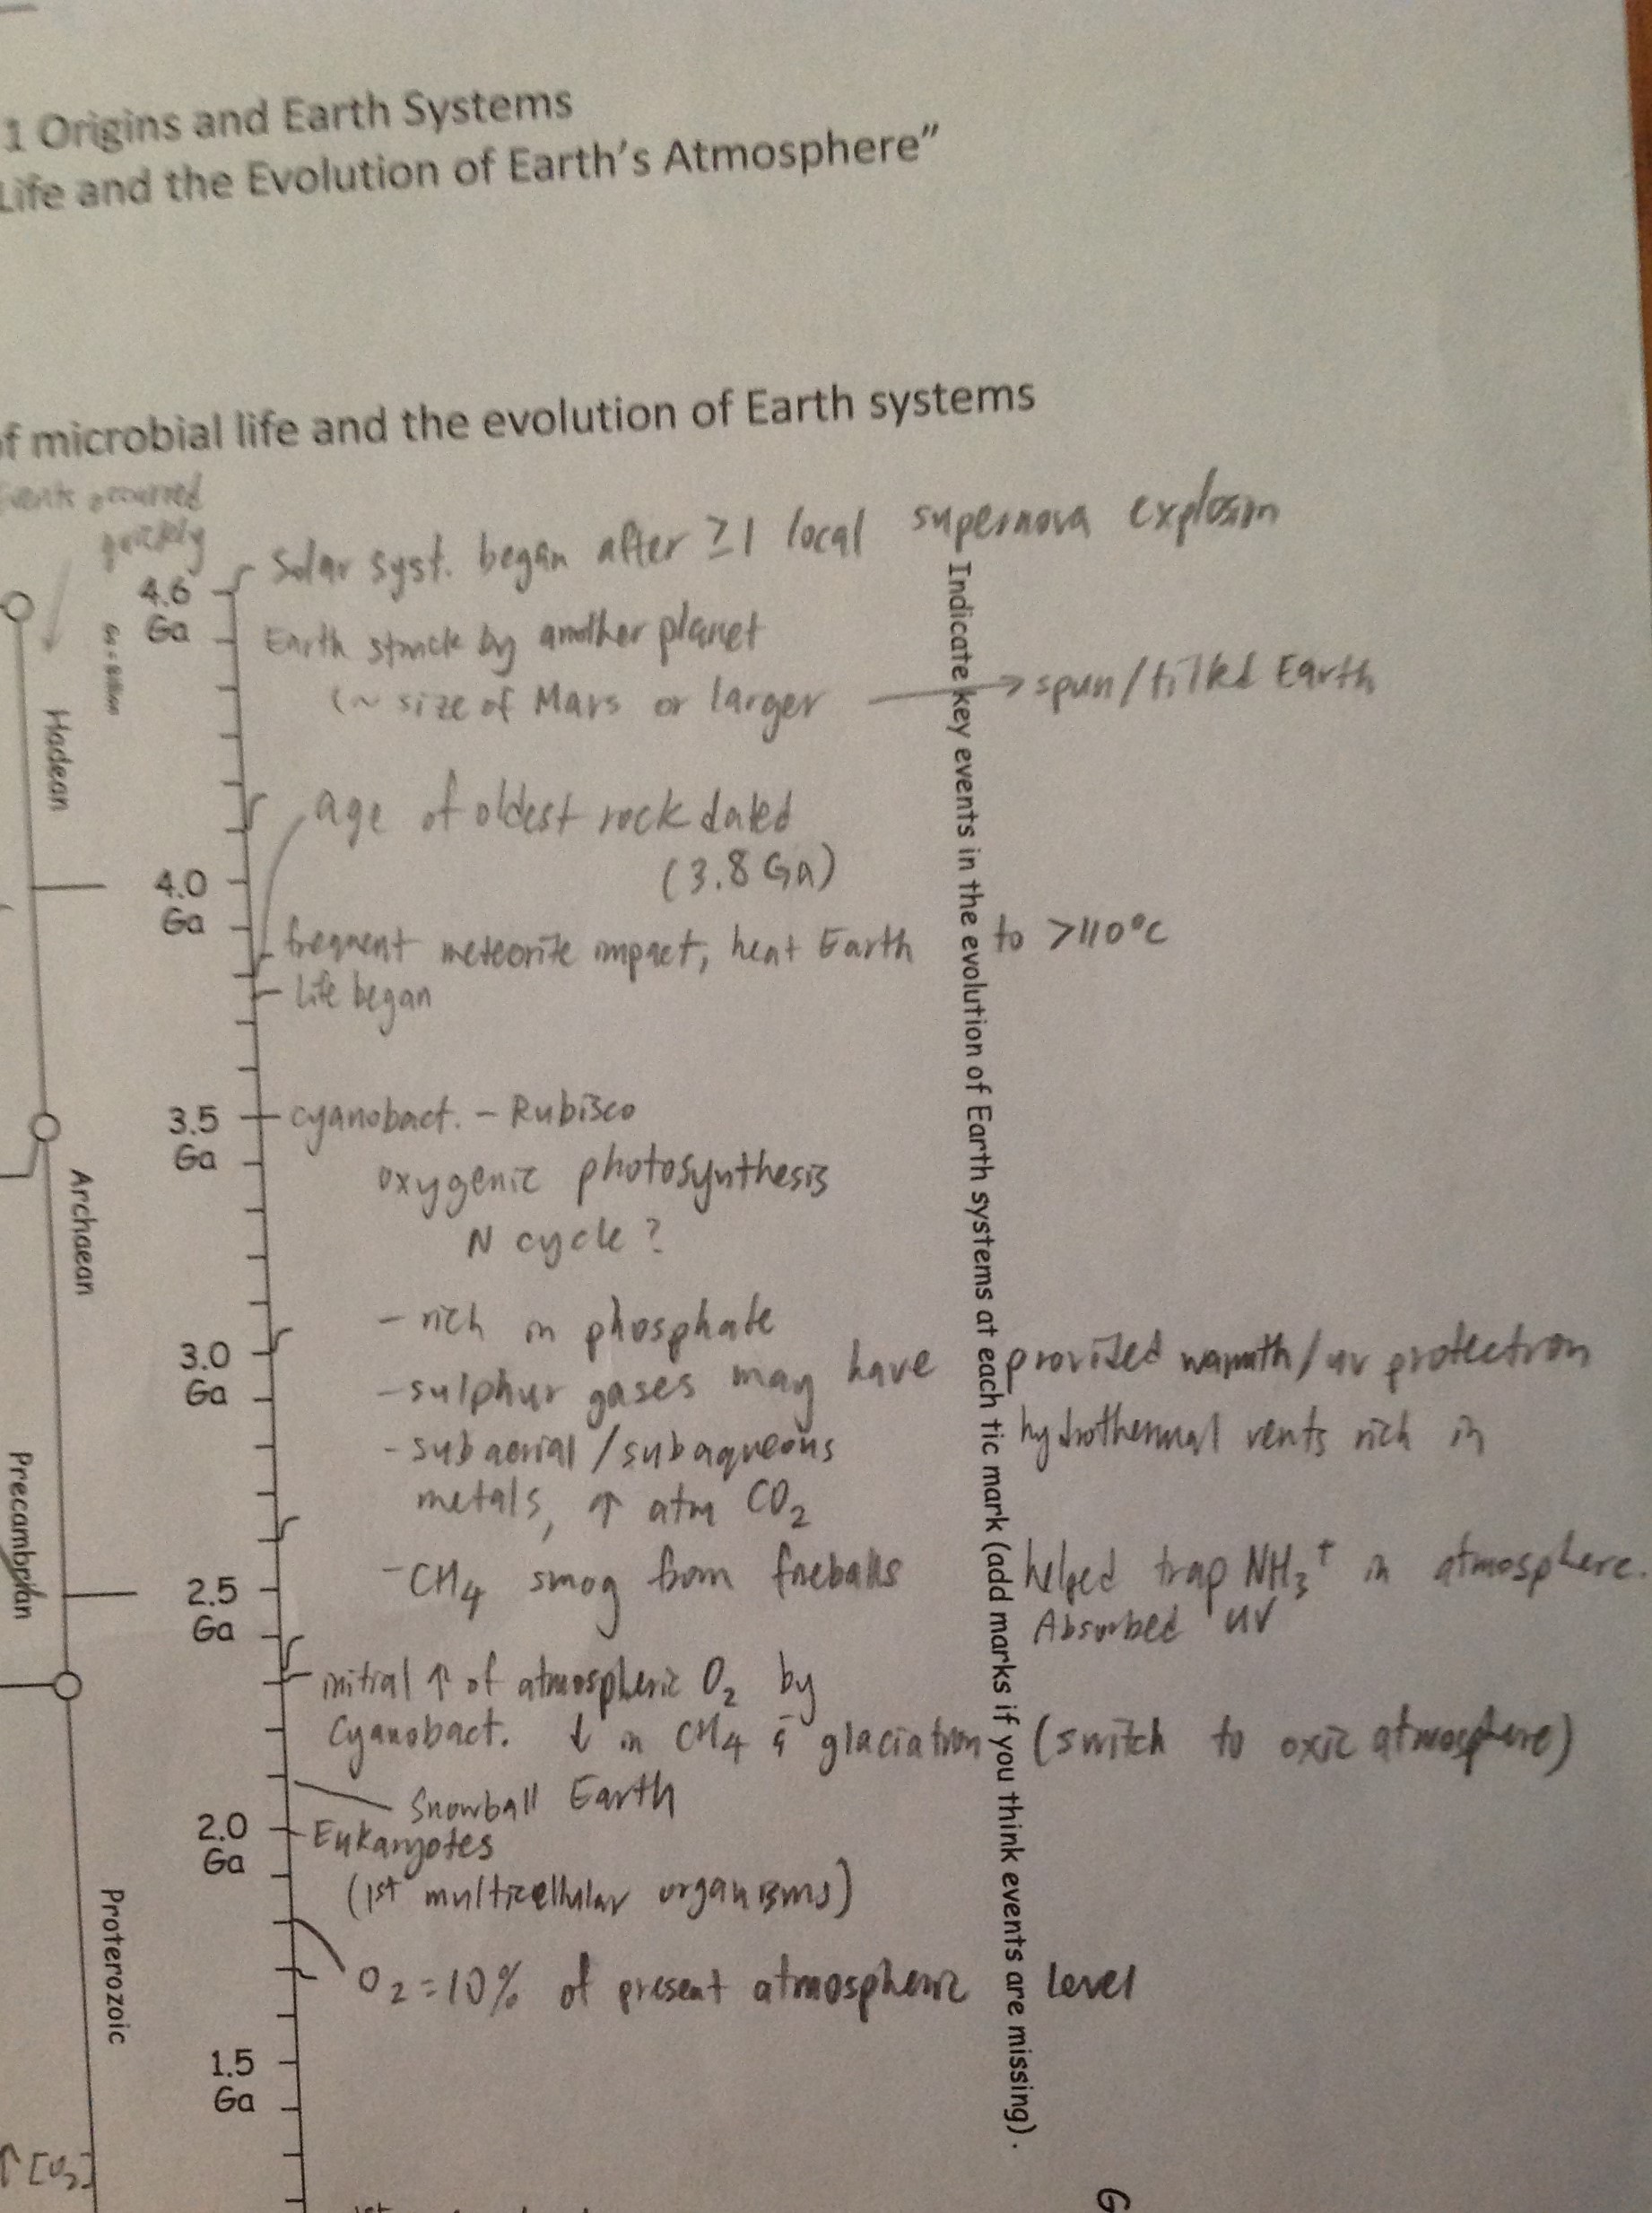 1 Origins and Earth Systems
Life and the Evolution of Earth's Atmosphere"
of microbial life and the evolution of Earth systems
Events occurred
quickly
Solar syst. began after ≥1 local supernova explosion
4.6
Ga
Ga = billion
Earth struck by another planet
(~ size of Mars or larger → spun/tilted Earth
Hadean
age of oldest rock dated
(3.8 Ga)
4.0
Ga
frequent meteorite impact, heat Earth to >110°C
Life began
3.5
Ga
cyanobact. - Rubisco
oxygenic photosynthesis
N cycle?
Archaean
- rich in phosphate
3.0
Ga
- sulphur gases may have provided warmth/uv protection
- subaerial/subaqueous hydrothermal vents rich in
metals, ↑ atm CO2
Precambrian
2.5
Ga
- CH4 smog from fireballs helped trap NH3+ in atmosphere.
Absorbed UV
initial ↑ of atmospheric O2 by
Cyanobact. ↓ in CH4 & glaciation (switch to oxic atmosphere)
Snowball Earth
2.0
Ga
Eukaryotes
(1st multicellular organisms)
O2 = 10% of present atmospheric level
Proterozoic
1.5
Ga
↑ [O2]
1st
Indicate key events in the evolution of Earth systems at each tic mark (add marks if you think events are missing).
G